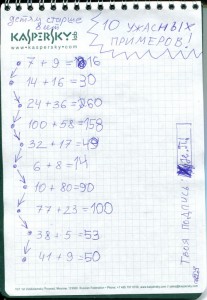 детям старше
8 лет
10 УЖАСНЫХ
ПРИМЕРОВ!
KASPERSKY
www.kaspersky.com
7 + 9 = 16
14 + 16 = 30
24 + 36 = 60
100 + 58 = 158
32 + 17 = 49
6 + 8 = 14
10 + 80 = 90
77 + 23 = 100
38 + 5 = 53
41 + 9 = 50
Твоя подпись